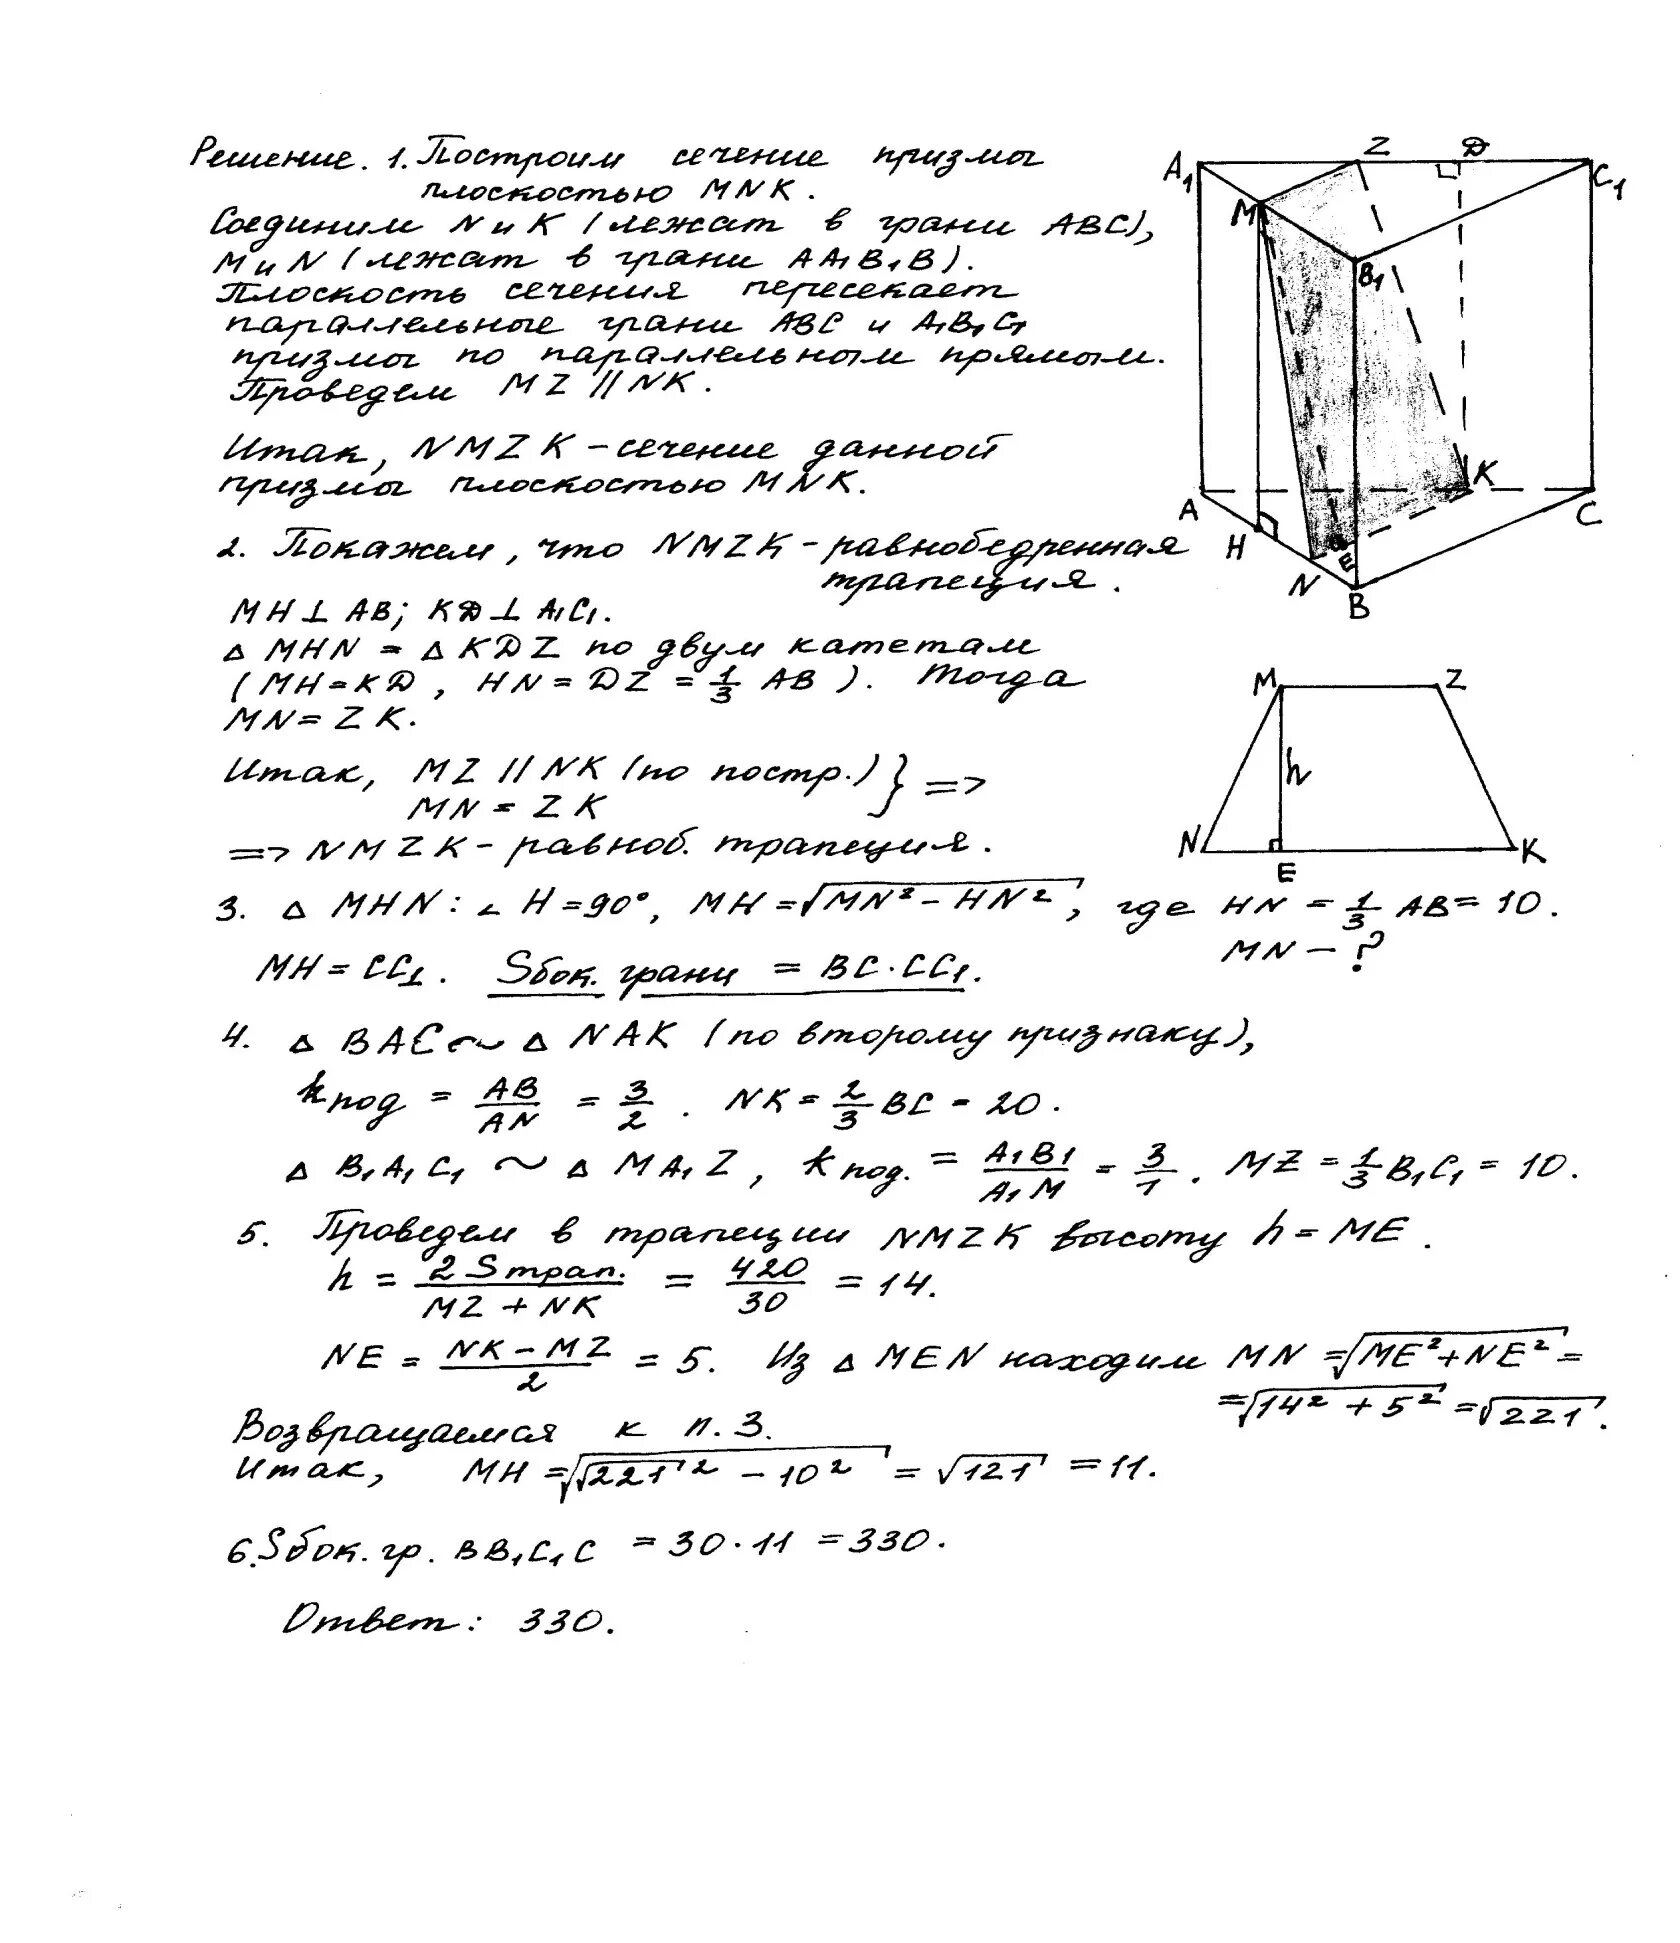 Решение. 1. Построим сечение призмы
плоскостью MNK.
Соединим N и K (лежат в грани ABC),
M и N (лежат в грани AA₁B₁B).
Плоскость сечения пересекает
параллельные грани ABC и A₁B₁C₁
призмы по параллельным прямым.
Проведем MZ || NK.
Итак, NMZK – сечение данной
призмы плоскостью MNK.
2. Покажем, что NMZK – равнобедренная
трапеция.
MH ⊥ AB; KD ⊥ A₁C₁.
△ MHN = △ KDZ по двум катетам
(MH = KD, HN = DZ = 1/3 AB). Тогда
MN = ZK.
Итак, MZ || NK (по постр.) } =>
MN = ZK
=> NMZK – равноб. трапеция.
3. △ MHN: ∠ H = 90°, MH = √(MN² – HN²), где HN = 1/3 AB = 10.
MN – ?
MH = CC₁. Sбок. грани = BC · CC₁.
4. △ BAC ~ △ NAK (по второму признаку),
kпод = AB/AN = 3/2. NK = 2/3 BC = 20.
△ B₁A₁C₁ ~ △ MA₁Z, kпод. = A₁B₁/A₁M = 3/1. MZ = 1/3 B₁C₁ = 10.
5. Проведем в трапеции NMZK высоту h = ME.
h = 2Sтрап./(MZ + NK) = 420/30 = 14.
NE = (NK – MZ)/2 = 5. Из △ MEN находим MN = √(ME² + NE²) =
= √(14² + 5²) = √221.
Возвращаемся к п. 3.
Итак, MH = √(√221² – 10²) = √121 = 11.
6. Sбок. гр. BB₁C₁C = 30 · 11 = 330.
Ответ: 330.
A₁ Z D C₁
M
B₁
A K C
H E
N
B
M Z
h
N K
E